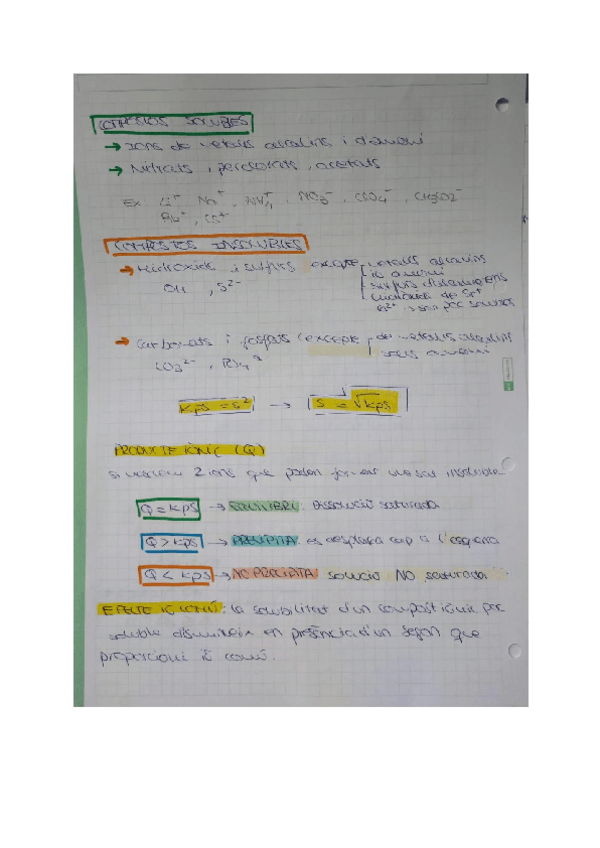 COMPOSTOS SOLUBLES
→ Ions de metalls alcalins i d'amoni
→ Nitrats, perclorats, acetats
Ex: Li⁺ Na⁺, NH₄⁺, NO₃⁻, ClO₄⁻, C₂H₃O₂⁻
Rb⁺, Cs⁺
COMPOSTOS INSOLUBLES
→ Hidròxids i sulfurs excepte metalls alcalins
OH, S²⁻
ió amoni
sulfurs d'alcalinoterris
hidròxids de Sr⁺
→ són poc solubles
→ Carbonats i fosfats (excepte de metalls alcalins
CO₃²⁻, PO₄³
ions amoni
Kps = s² → s = √Kps
PRODUCTE IÒNIC (Q)
Si 2 ions que poden formar una sal insoluble
Q = Kps → EQUILIBRI: Dissolució saturada
Q > Kps → PRECIPITA: es desplaça cap a l'esquerra
Q < Kps → NO PRECIPITA solució NO saturada
EFECTE IÓ COMÚ: la solubilitat d'un compost iònic poc
soluble disminueix en presència d'un segon que
proporcioni ió comú.